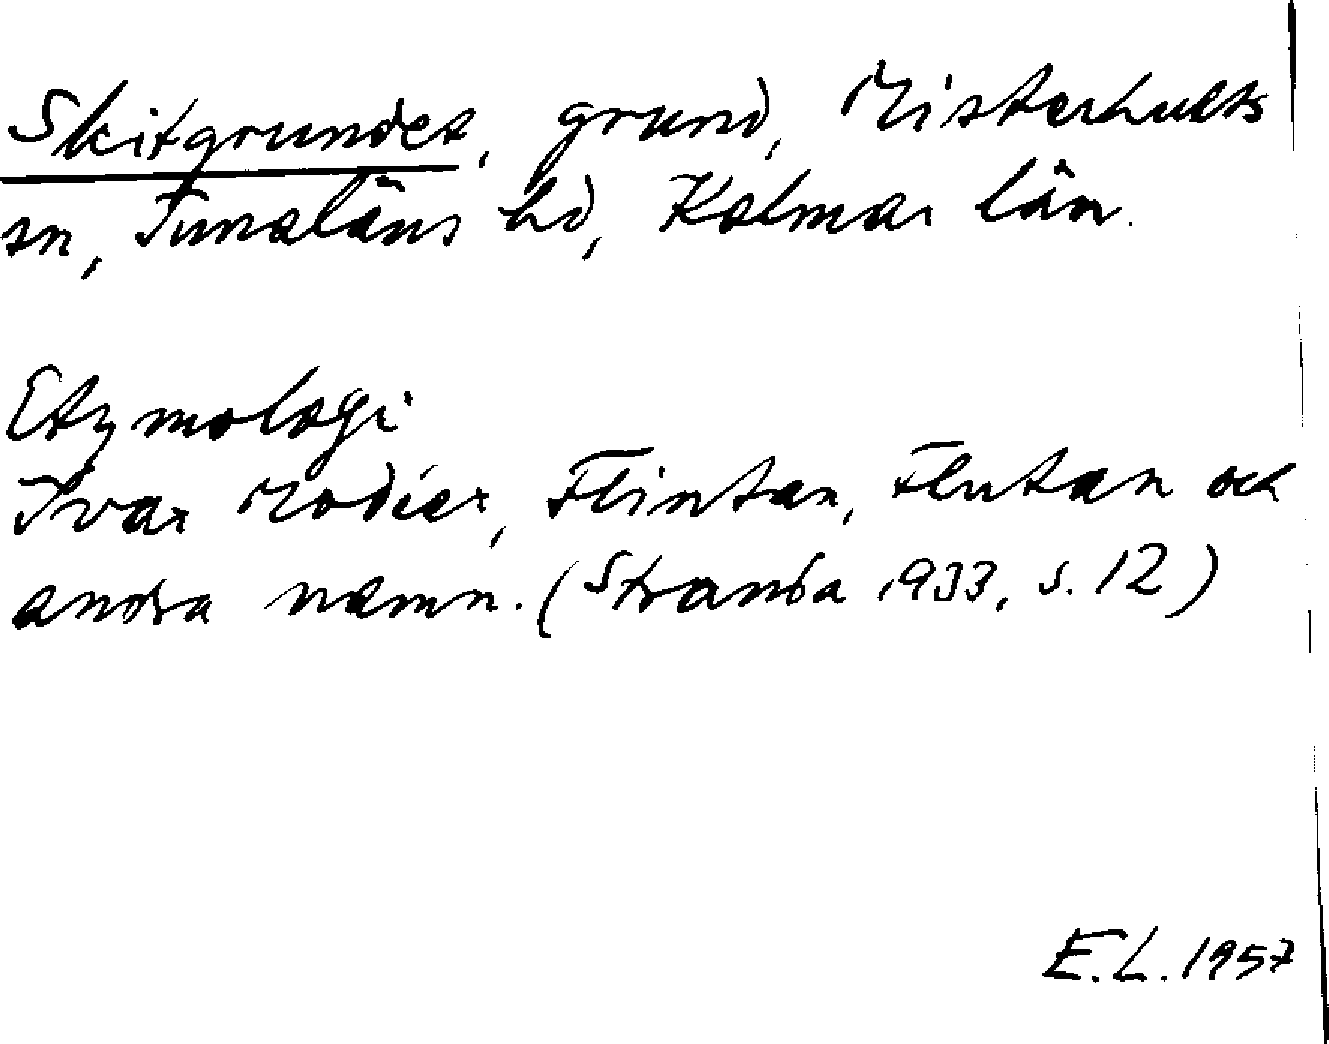 Skitgrundet, grund, Misterhults
sn, Tunaläns hd, Kalmar län.
Etymologi
Ivar Modéer, Flintan, Flutan och
andra namn. (Stranda 1933, s. 12)
E.L. 1957